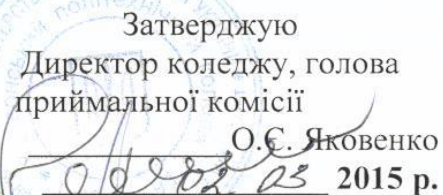 Затверджую
Директор коледжу, голова
приймальної комісії
О.Є. Яковенко
02 03 2015 р.